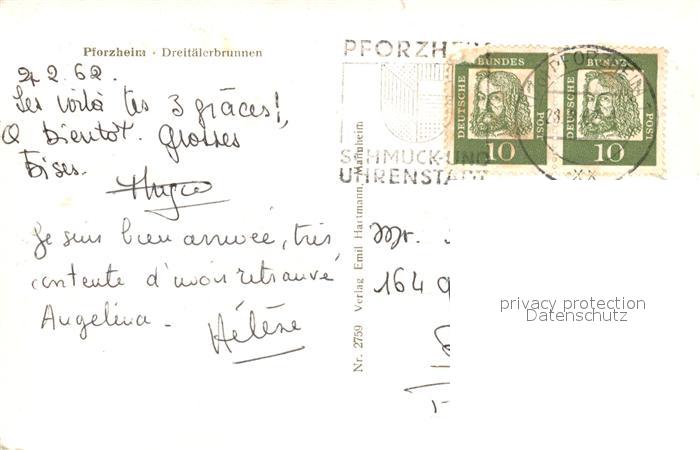 Pforzheim · Dreitälerbrunnen
2.62.
Les voilà les 3 grâces!,
a bientot. Grosses
Bises.
Hugo
Je suis bien arrivée, très
contente d'avoir retrouvé
Angelina.
Hélène
Nr. 2759 Verlag Emil Hartmann, Mannheim
PFORZHEIM
SCHMUCK-UND
UHRENSTADT
DEUTSCHE BUNDES POST
10
DEUTSCHE BUNDES POST
10
Mr.
164
privacy protection
Datenschutz